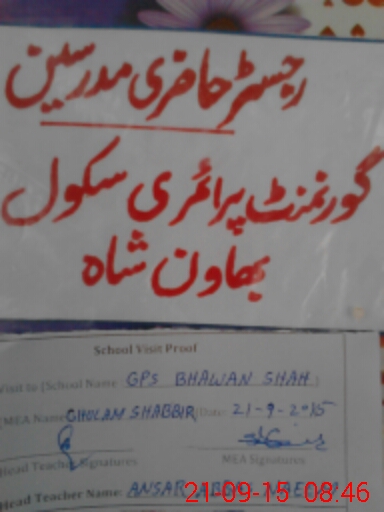 رجسٹر حاضری مدرسین
گورنمنٹ پرائمری سکول
بھاون شاہ
School Visit Proof
Visit to (School Name: GPS BHAWAN SHAH)
(MEA Name: GHOLAM SHABBIR) Date: 21-9-2015
Head Teacher Signatures MEA Signatures
Head Teacher Name: ANSAR
21-09-15 08:46